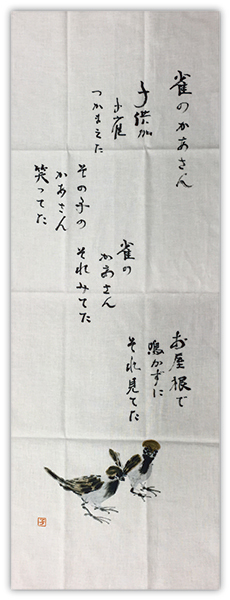 雀のかあさん
子供が
小雀
つかまえた
その子の
かあさん
笑ってた
雀の
かあさん
それみてた
お屋根で
鳴かずに
それ見てた